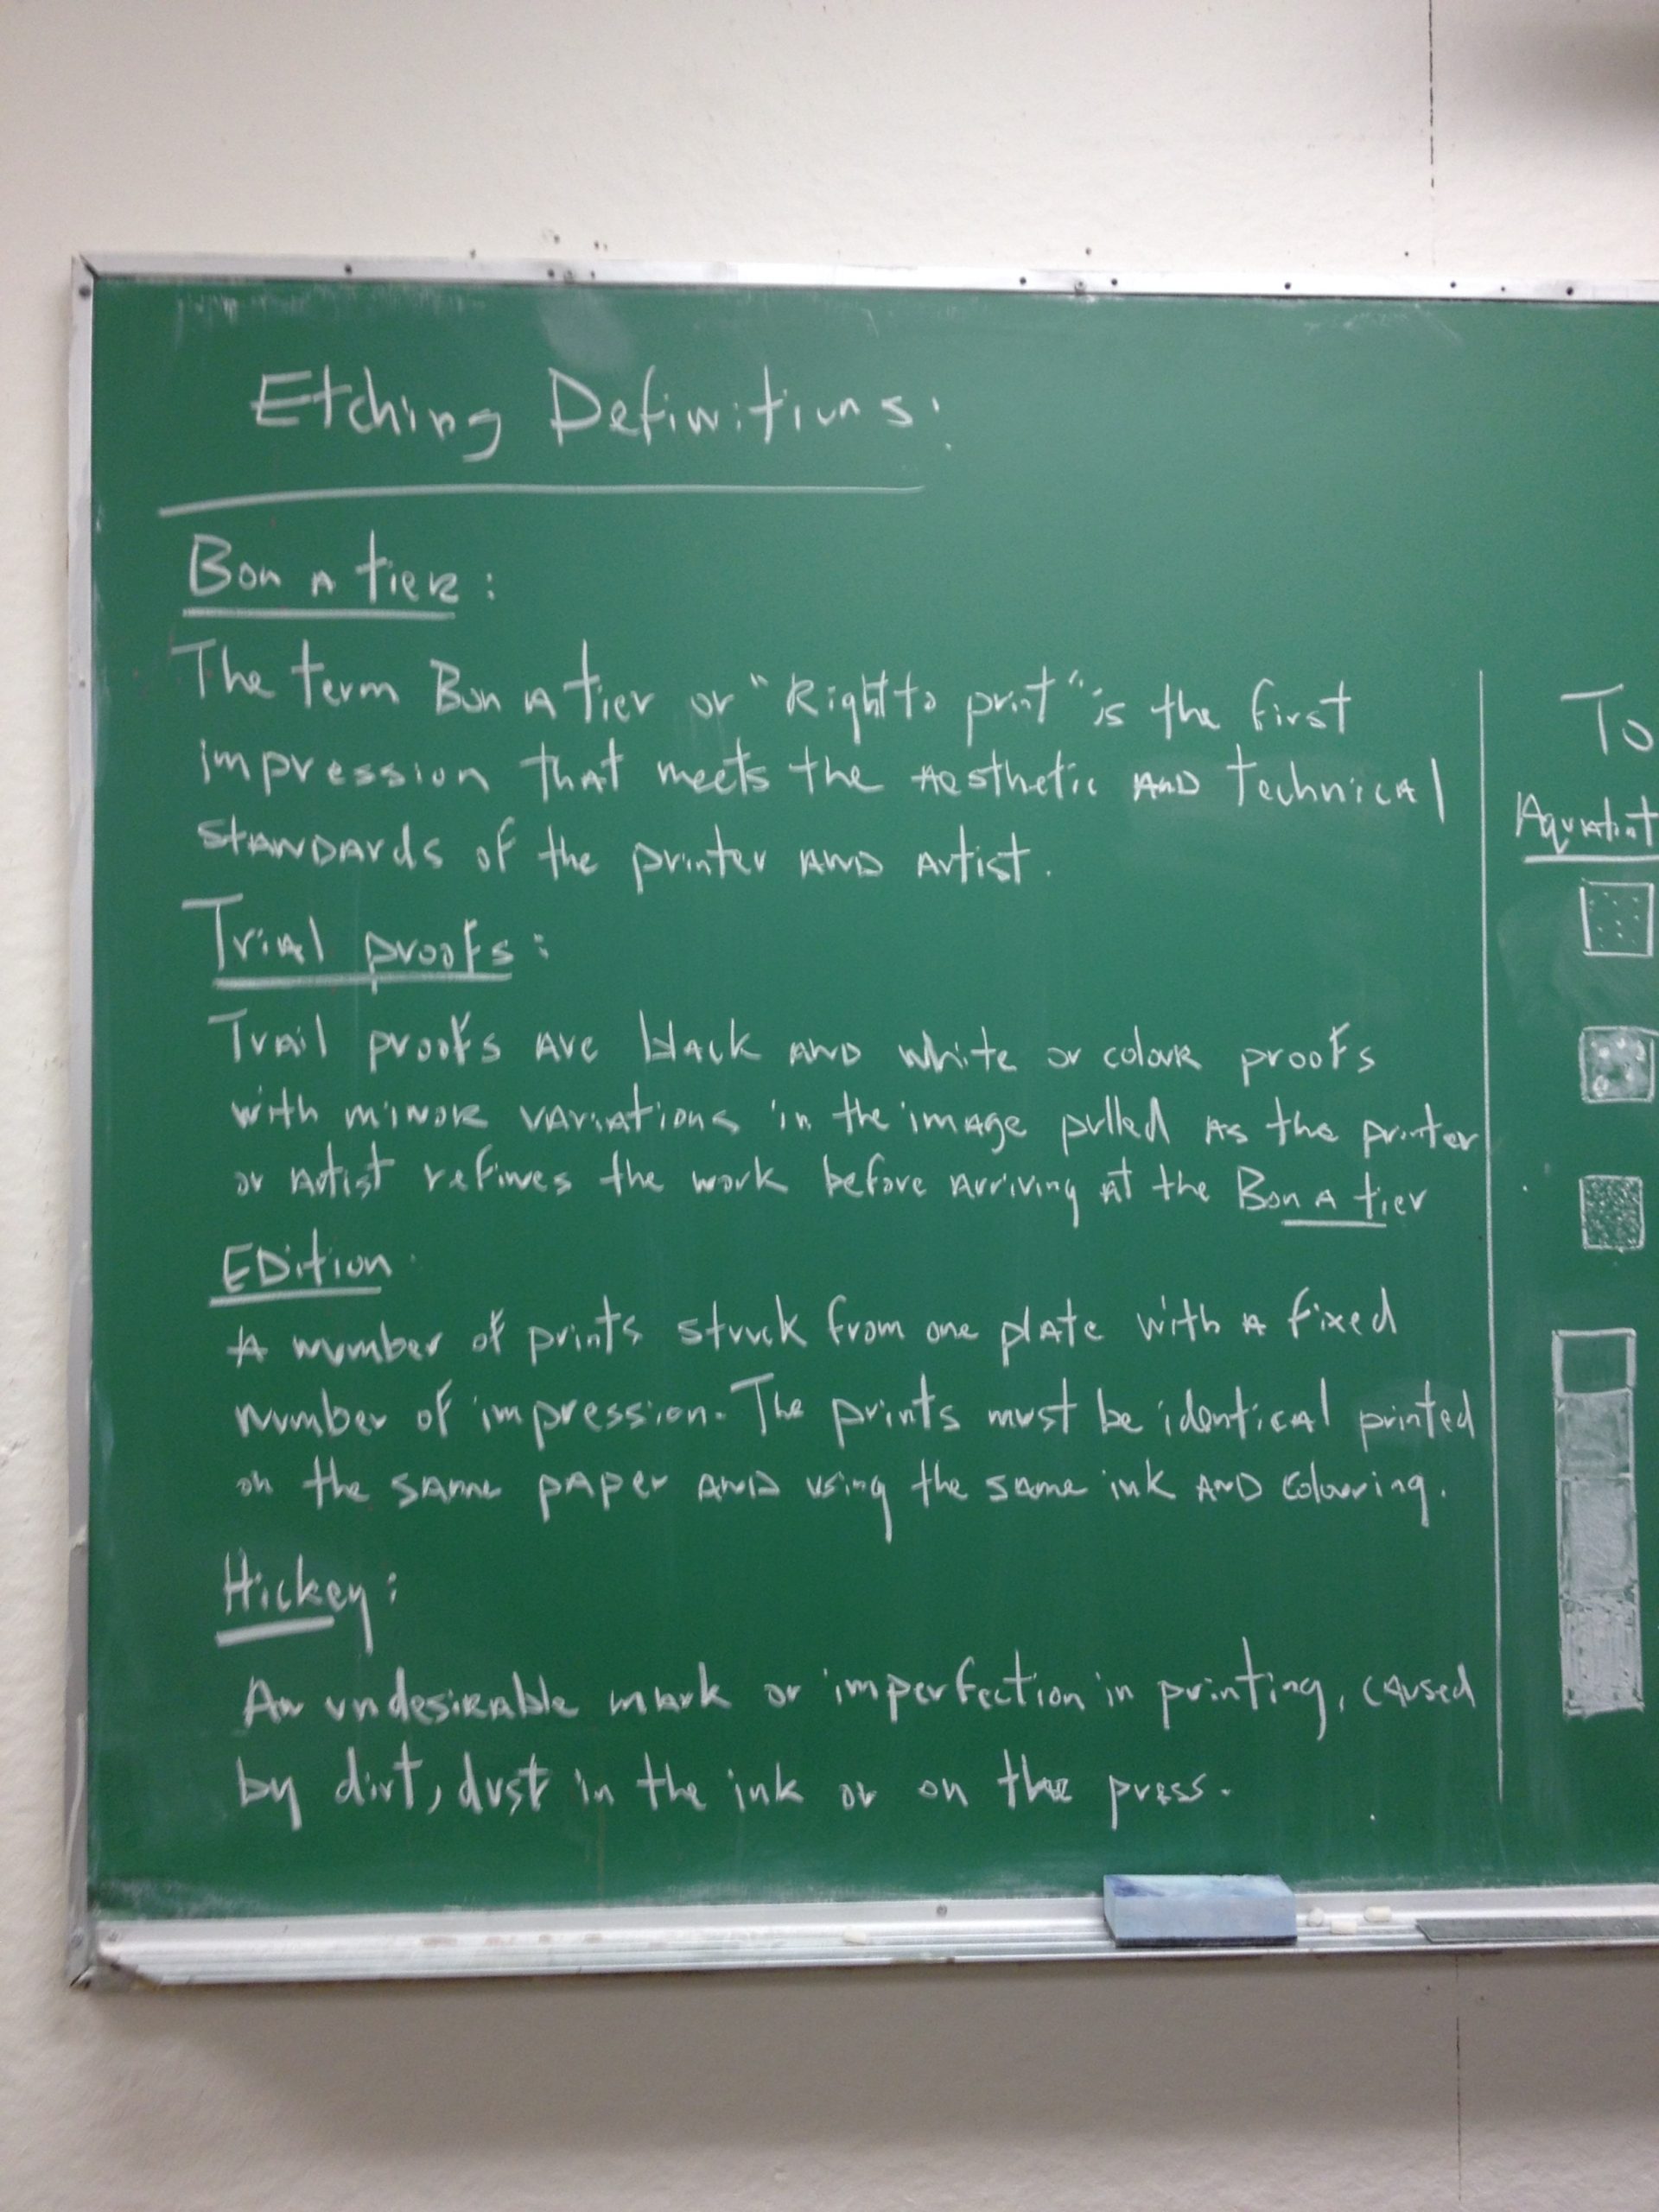 Etching Definitions:
Bon A tier:
The term Bon A tier or "Right to print" is the first
impression that meets the Aesthetic AND technical
STANDARDS of the printer AND Artist.
Trial proofs:
Trail proofs are black AND white or colour proofs
with minor variations in the image pulled as the printer
or Artist refines the work before arriving at the Bon A tier
EDition
A number of prints struck from one plate with a fixed
number of impression. The prints must be identical printed
on the same paper AND using the same ink AND colouring.
Hickey:
An undesirable mark or imperfection in printing, caused
by dirt, dust in the ink or on the press.
To
Aquatint